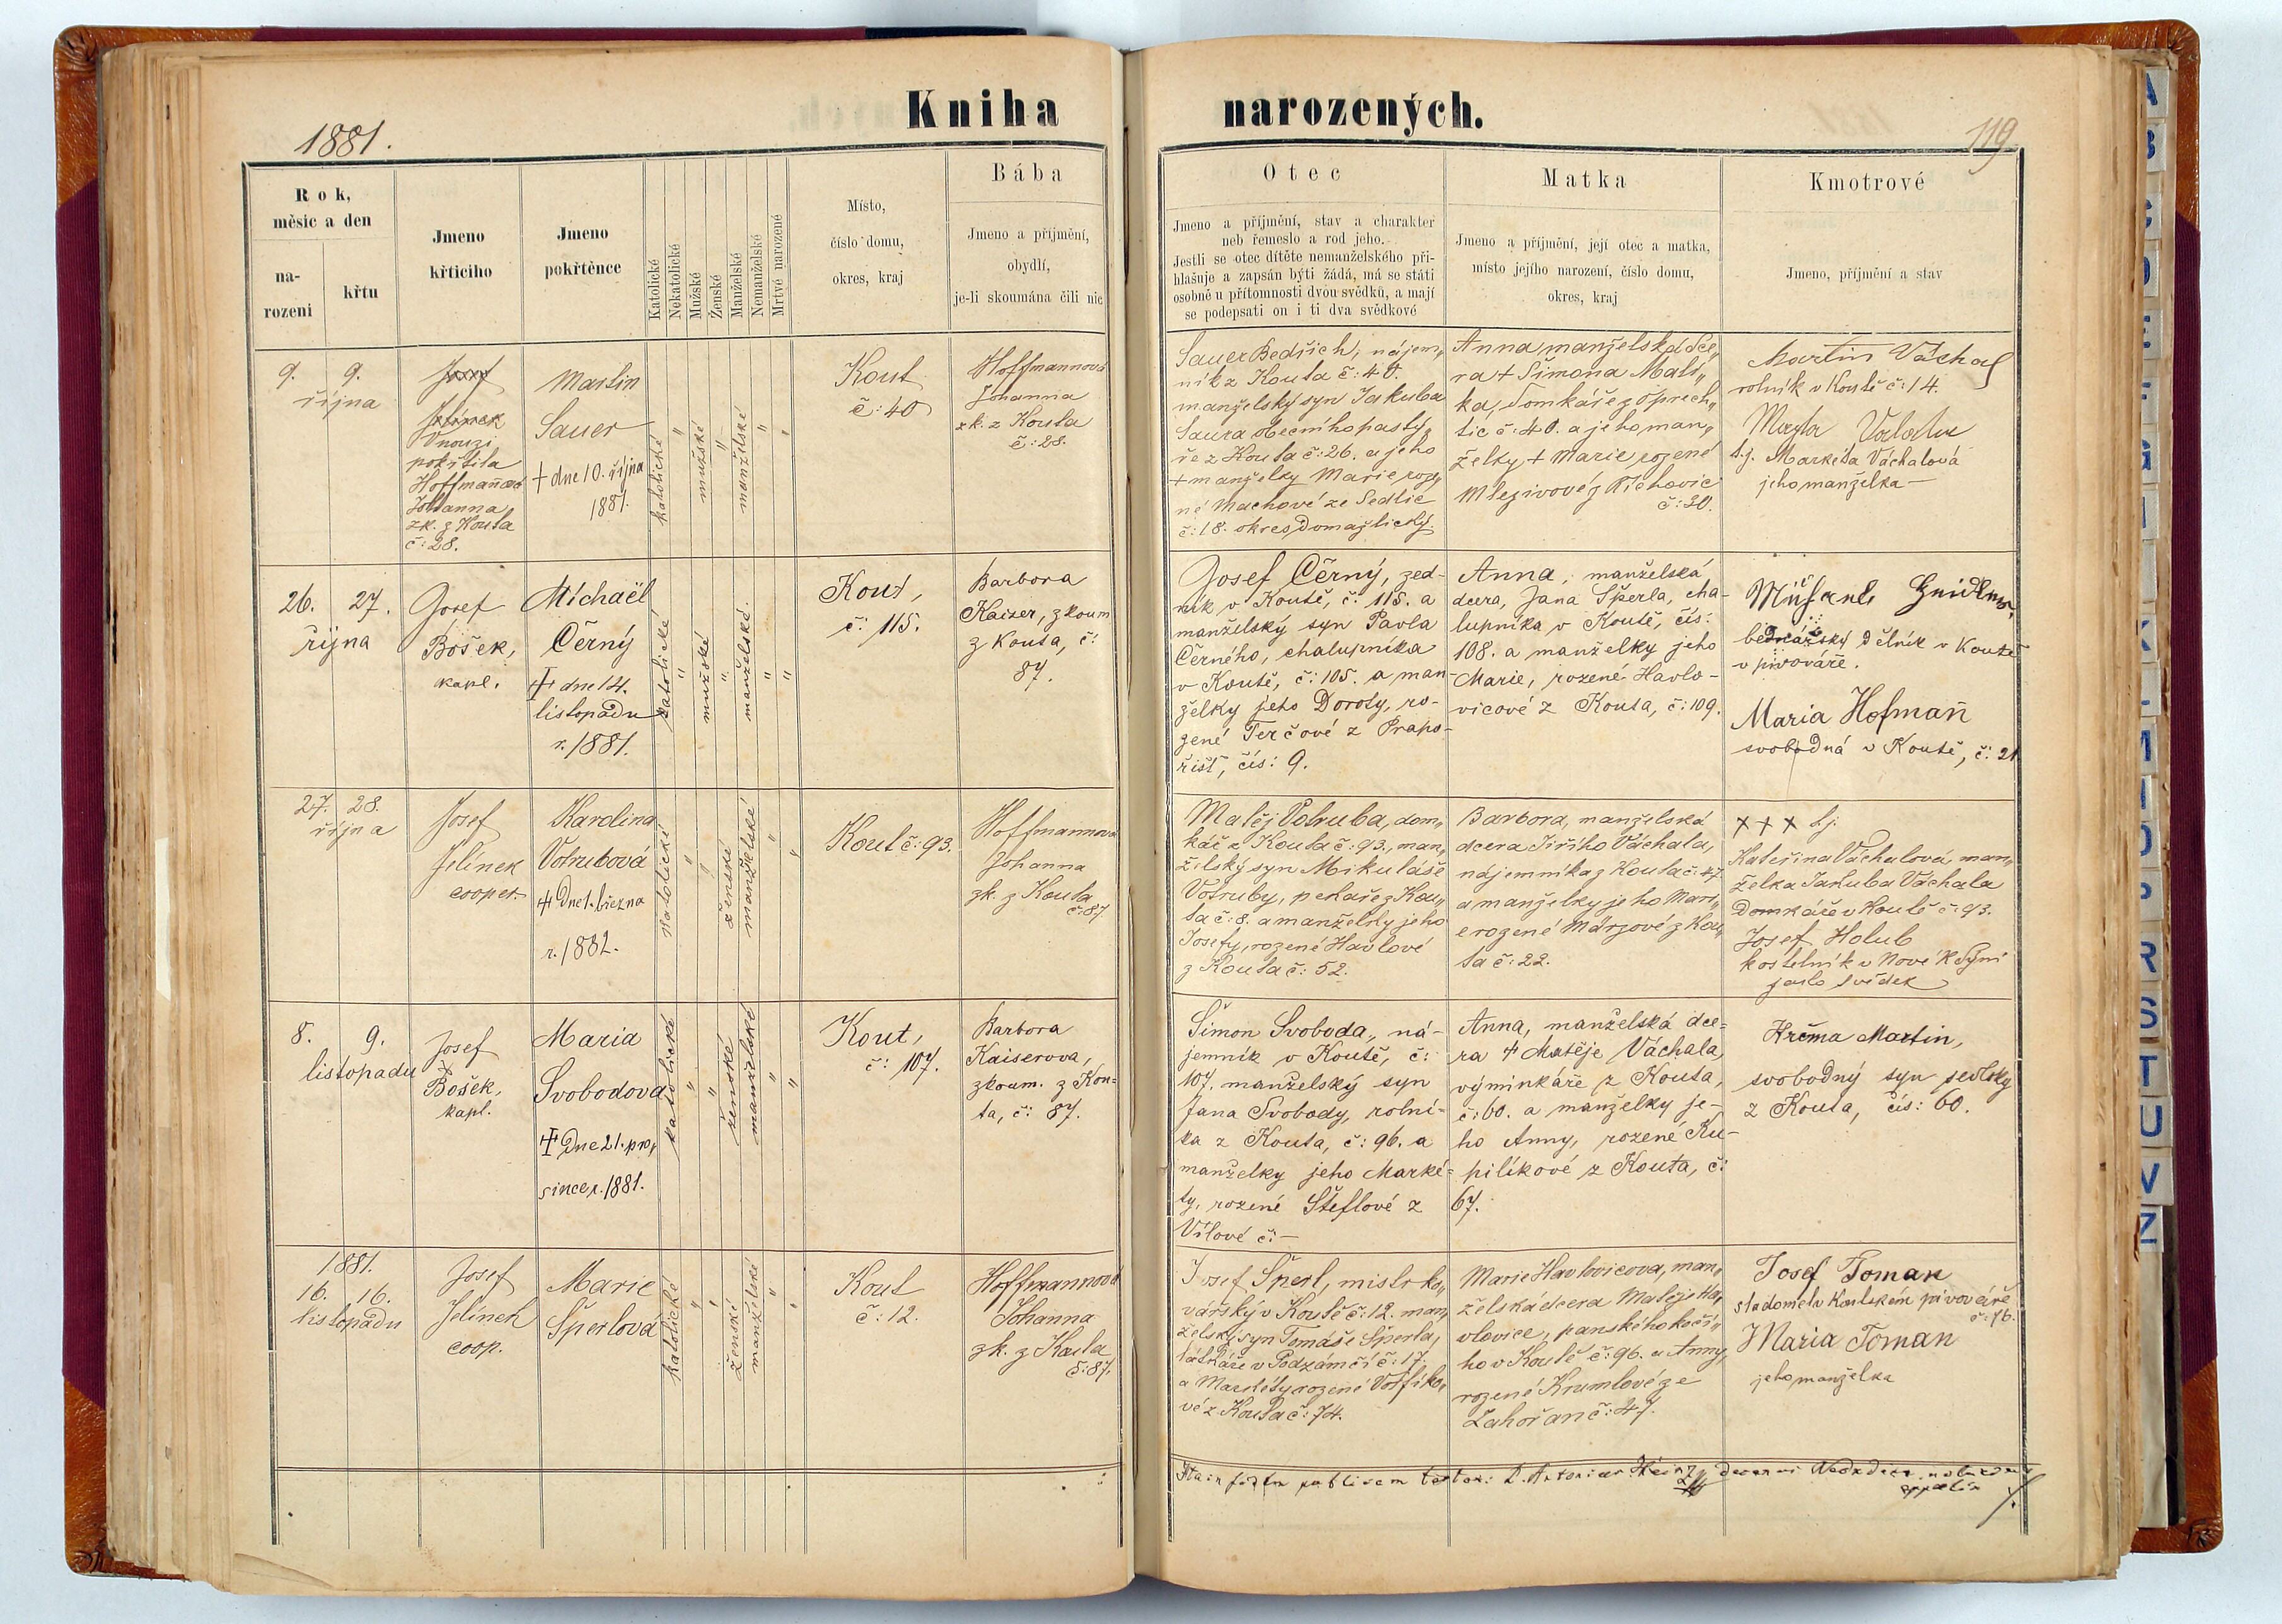 Kniha narozených.
1881.
119
Rok,
měsíc a den
na-
rození
křtu
Jmeno
křticího
Jmeno
pokřtěnce
Katolické
Nekatolické
Mužské
Ženské
Manželské
Nemanželské
Mrtvé narozené
Místo,
číslo domu,
okres, kraj
Bába
Jmeno a příjmění,
obydlí,
je-li skoumána čili nic
Otec
Jmeno a příjmění, stav a charakter
neb řemeslo a rod jeho.
Jestli se otec dítěte nemanželského při-
hlašuje a zapsán býti žádá, má se státi
osobně u přítomnosti dvou svědků, a mají
se podepsati on i ti dva svědkové
Matka
Jmeno a příjmění, její otec a matka,
místo jejího narození, číslo domu,
okres, kraj
Kmotrové
Jmeno, příjmění a stav
9. 9.
října
Josef
Jelínek
V nouzi
pokřtila
Hoffmannová
Johanna
zk. z Kouta
č: 28.
Martin
Sauer
+ dne 10. října
1881.
katolické
"
mužské
"
manželské
"
"
Kout
č: 40
Hoffmannová
Johanna
zk. z Kouta
č: 28.
Sauer Bedřich, nájem„
ník z Kouta č: 40.
manželský syn Jakuba
Saura obecního pastý„
ře z Kouta č: 26. a jeho
+ manželky Marie roze„
né Machové ze Sedlic
č: 18. okres Domažlický.
Anna, manželská dce„
ra + Šimona Mati„
ka, Domkáře z Oprech„
tic č: 40. a jeho man„
želky + Marie rozené
Mlezivové z Tichovic
č: 30.
Martin Váchal
rolník v Koutě č: 14.
t.j. Markéta Váchalová
jeho manželka –
26. 27.
října
Josef
Bošek,
kapl.
Michaël
Černý
+ dne 14.
listopadu
r. 1881.
katolické
"
mužské
"
manželské.
"
"
Kout,
č: 115.
Barbora
Kaizer, zkoum
z Kouta, č:
87.
Josef Černý, zed-
ník v Koutě, č: 115. a
manželský syn Pavla
Černého, chalupníka
v Koutě, č: 105. a man-
želky jeho Doroty, ro-
zené Terčové z Prapo-
řišť, čís: 9.
Anna, manželská
dcera, Jana Šperla, cha-
lupníka v Koutě, čís:
108. a manželky jeho
Marie, rozené Havlo-
vicové z Kouta, č: 109.
bednářský dělník v Koutě
v pivováře.
Maria Hofmann
svobodná v Koutě, č: 21
27. 28.
října
Josef
Jelínek
cooper.
Karolina
Votrubová
+ Dne 1. března
r. 1882.
katolické
"
"
ženské
manželské
"
"
Kout č: 93.
Hoffmannová
Johanna
zk. z Kouta
č: 87
Matěj Votruba, dom„
kář z Kouta č: 93., man„
želský syn Mikuláše
Votruby, pekaře z Kou„
ta č: 8. a manželky jeho
Josefy, rozené Havlové
z Kouta č: 52.
Barbora, manželská
dcera Jiřího Váchala,
nájemníka z Kouta č: 47
a manželky jeho Mari„
e rozené Márzové z Kou„
ta č: 22.
+++ t.j.
Kateřina Váchalová man„
želka Jakuba Váchala
Domkáře v Koutě č: 93.
Josef Holub
kostelník v Nové Kdyni
jako svědek
8. 9.
listopadu
Josef
Bošek,
kapl.
Maria
Svobodova
+ Dne 21. pro„
since r. 1881.
katolické
"
"
ženské
manželské
"
"
Kout,
č: 107.
Barbora
Kaiserova,
zkoum. z Kou-
ta, č: 87.
Šimon Svoboda, ná-
jemník v Koutě, č:
107. manželský syn
Jana Svobody, rolní-
ka z Kouta, č: 96. a
manželky jeho Marké-
ty, rozené Šteflové z
Vílové č: –
Anna, manželská dce-
ra + Matěje Váchala,
výminkáře z Kouta,
č: 60. a manželky je-
ho Anny, rozené Ku-
pilíkové z Kouta, č:
67.
Krčma Martin,
svobodný syn sedlský
z Kouta, čís: 60.
1881.
16. 16.
listopadu
Josef
Jelínek
coop.
Marie
Šperlová
katolické
"
"
ženské
manželské
"
"
Kout
č: 12.
Hoffmannová
Johanna
zk. z Kouta
č: 87.
Josef Šperl, mistr ko„
vářský v Koutě č: 12. man„
želský syn Tomáše Šperla,
v Podzámčí č: 17.
a Markéty rozené Votříko„
vé z Kouta č: 74.
Marie Havlovicova, man„
želská dcera Matěje Ha„
vlovice, panského kočí„
ho v Koutě č: 96. a Anny,
rozené Krumlové ze
Zahořan č: 47.
Josef Toman
sladomel v Koutském pivováře
č: 76.
Maria Toman
jeho manželka